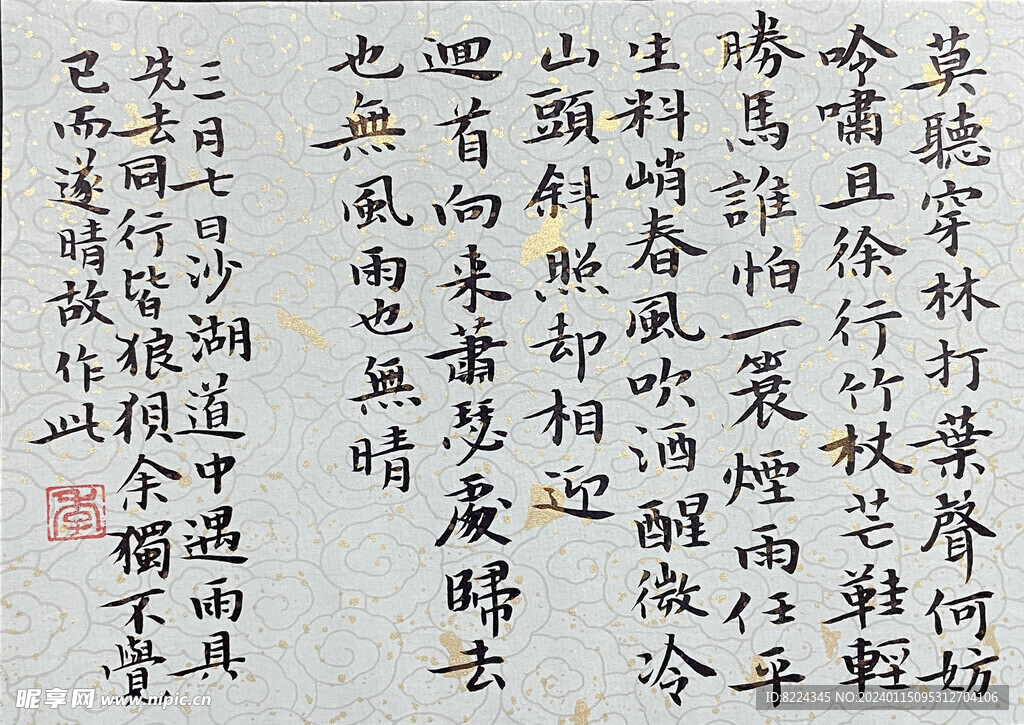 莫聽穿林打葉聲何妨
吟嘯且徐行竹杖芒鞋輕
勝馬誰怕一簑煙雨任平
生料峭春風吹酒醒微冷
山頭斜照却相迎
迴首向来蕭瑟處歸去
也無風雨也無晴
三月七日沙湖道中遇雨具
先去同行皆狼狽余獨不覺
已而遂晴故作此
昵享网 www.nipic.cn
ID:8224345 NO:20240115095312704106